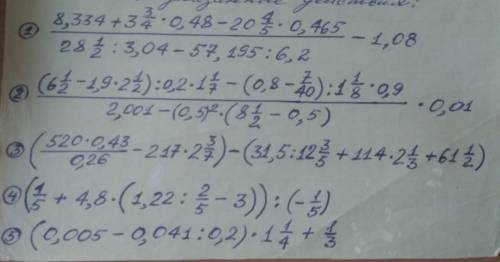 указанные действия:
① (8,334 + 3 3/4 · 0,48 − 20 4/5 · 0,465) / (28 1/2 : 3,04 − 57,195 : 6,2) − 1,08
② ((6 1/2 − 1,9 · 2 1/2) : 0,2 · 1 1/7 − (0,8 − 7/40) : 1 1/8 · 0,9) / (2,001 − (0,5)² · (8 1/2 − 0,5)) · 0,01
③ ((520 · 0,43) / 0,26 − 217 · 2 3/7) − (31,5 : 12 3/5 + 114 · 2 1/3 + 61 1/2)
④ (1/5 + 4,8 · (1,22 : 2/5 − 3)) : (− 1/5)
⑤ (0,005 − 0,041 : 0,2) · 1 1/4 + 1/3